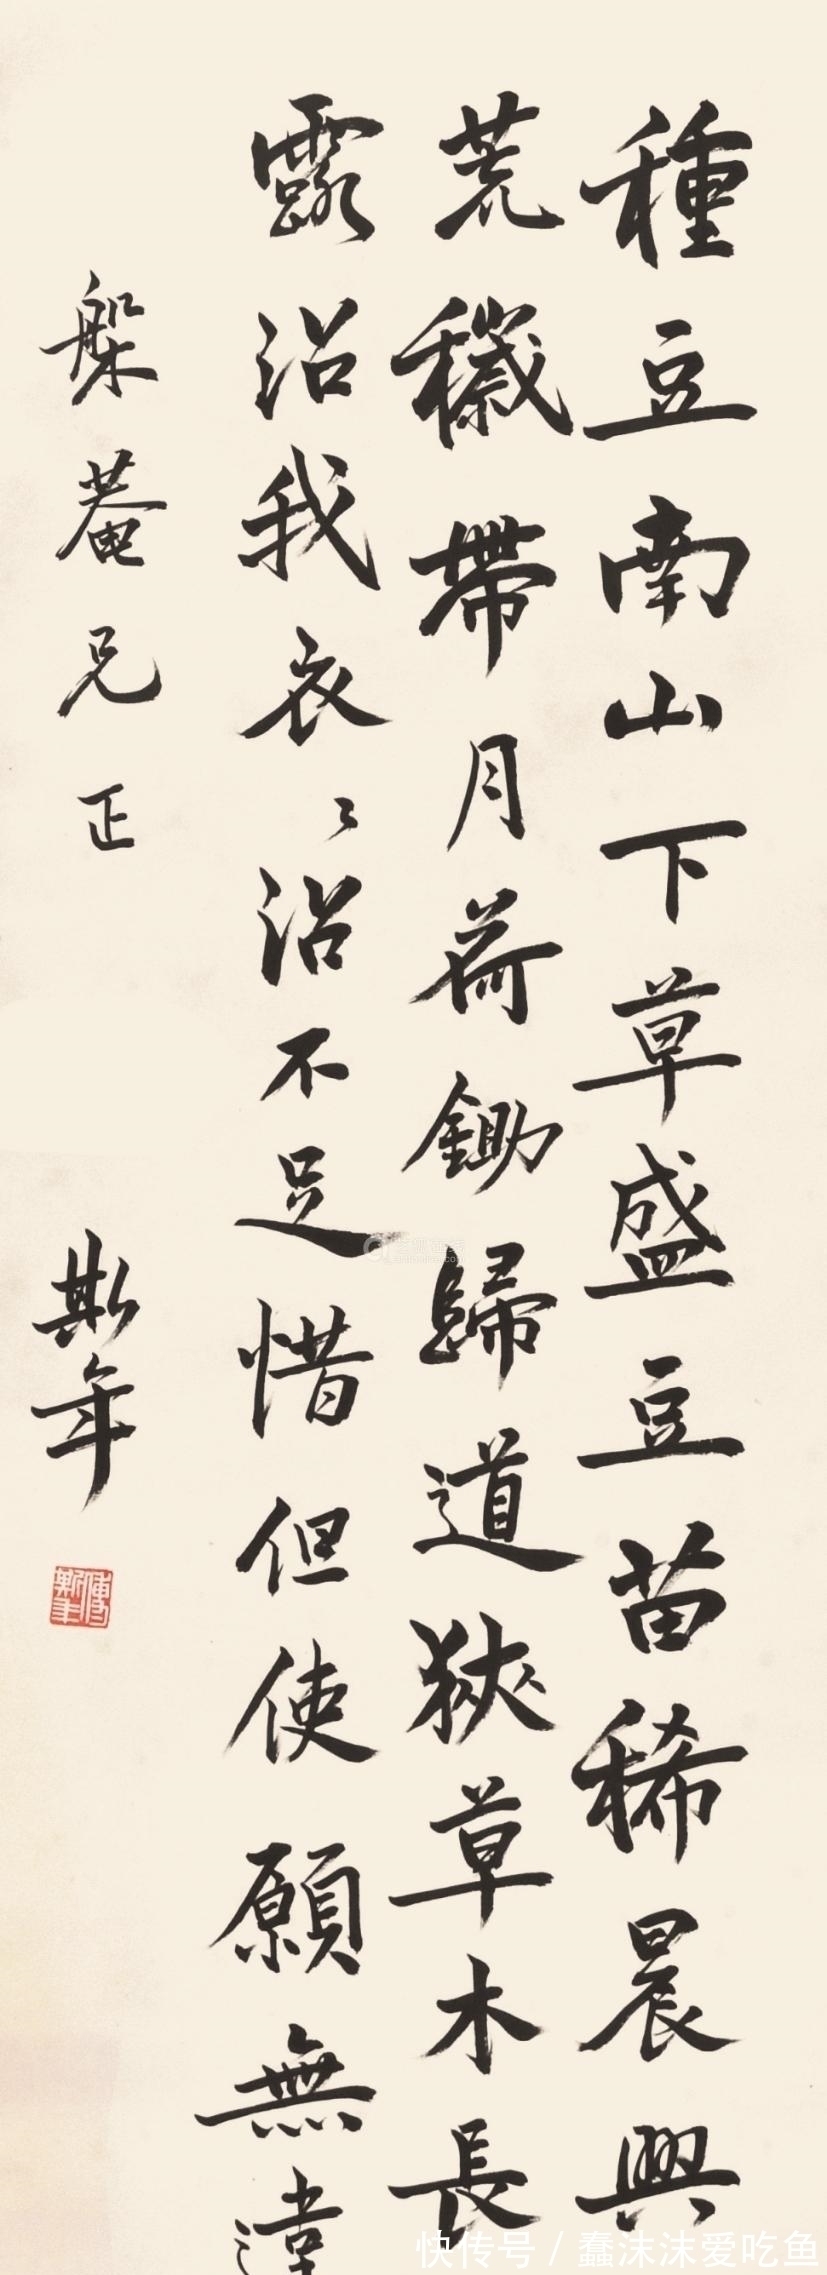 種豆南山下草盛豆苗稀晨興
荒穢帶月荷鋤歸道狹草木長
露沾我衣〻沾不足惜但使願無違
槃菴兄正
斯年
傅斯年
快传号 / 蠢沫沫爱吃鱼